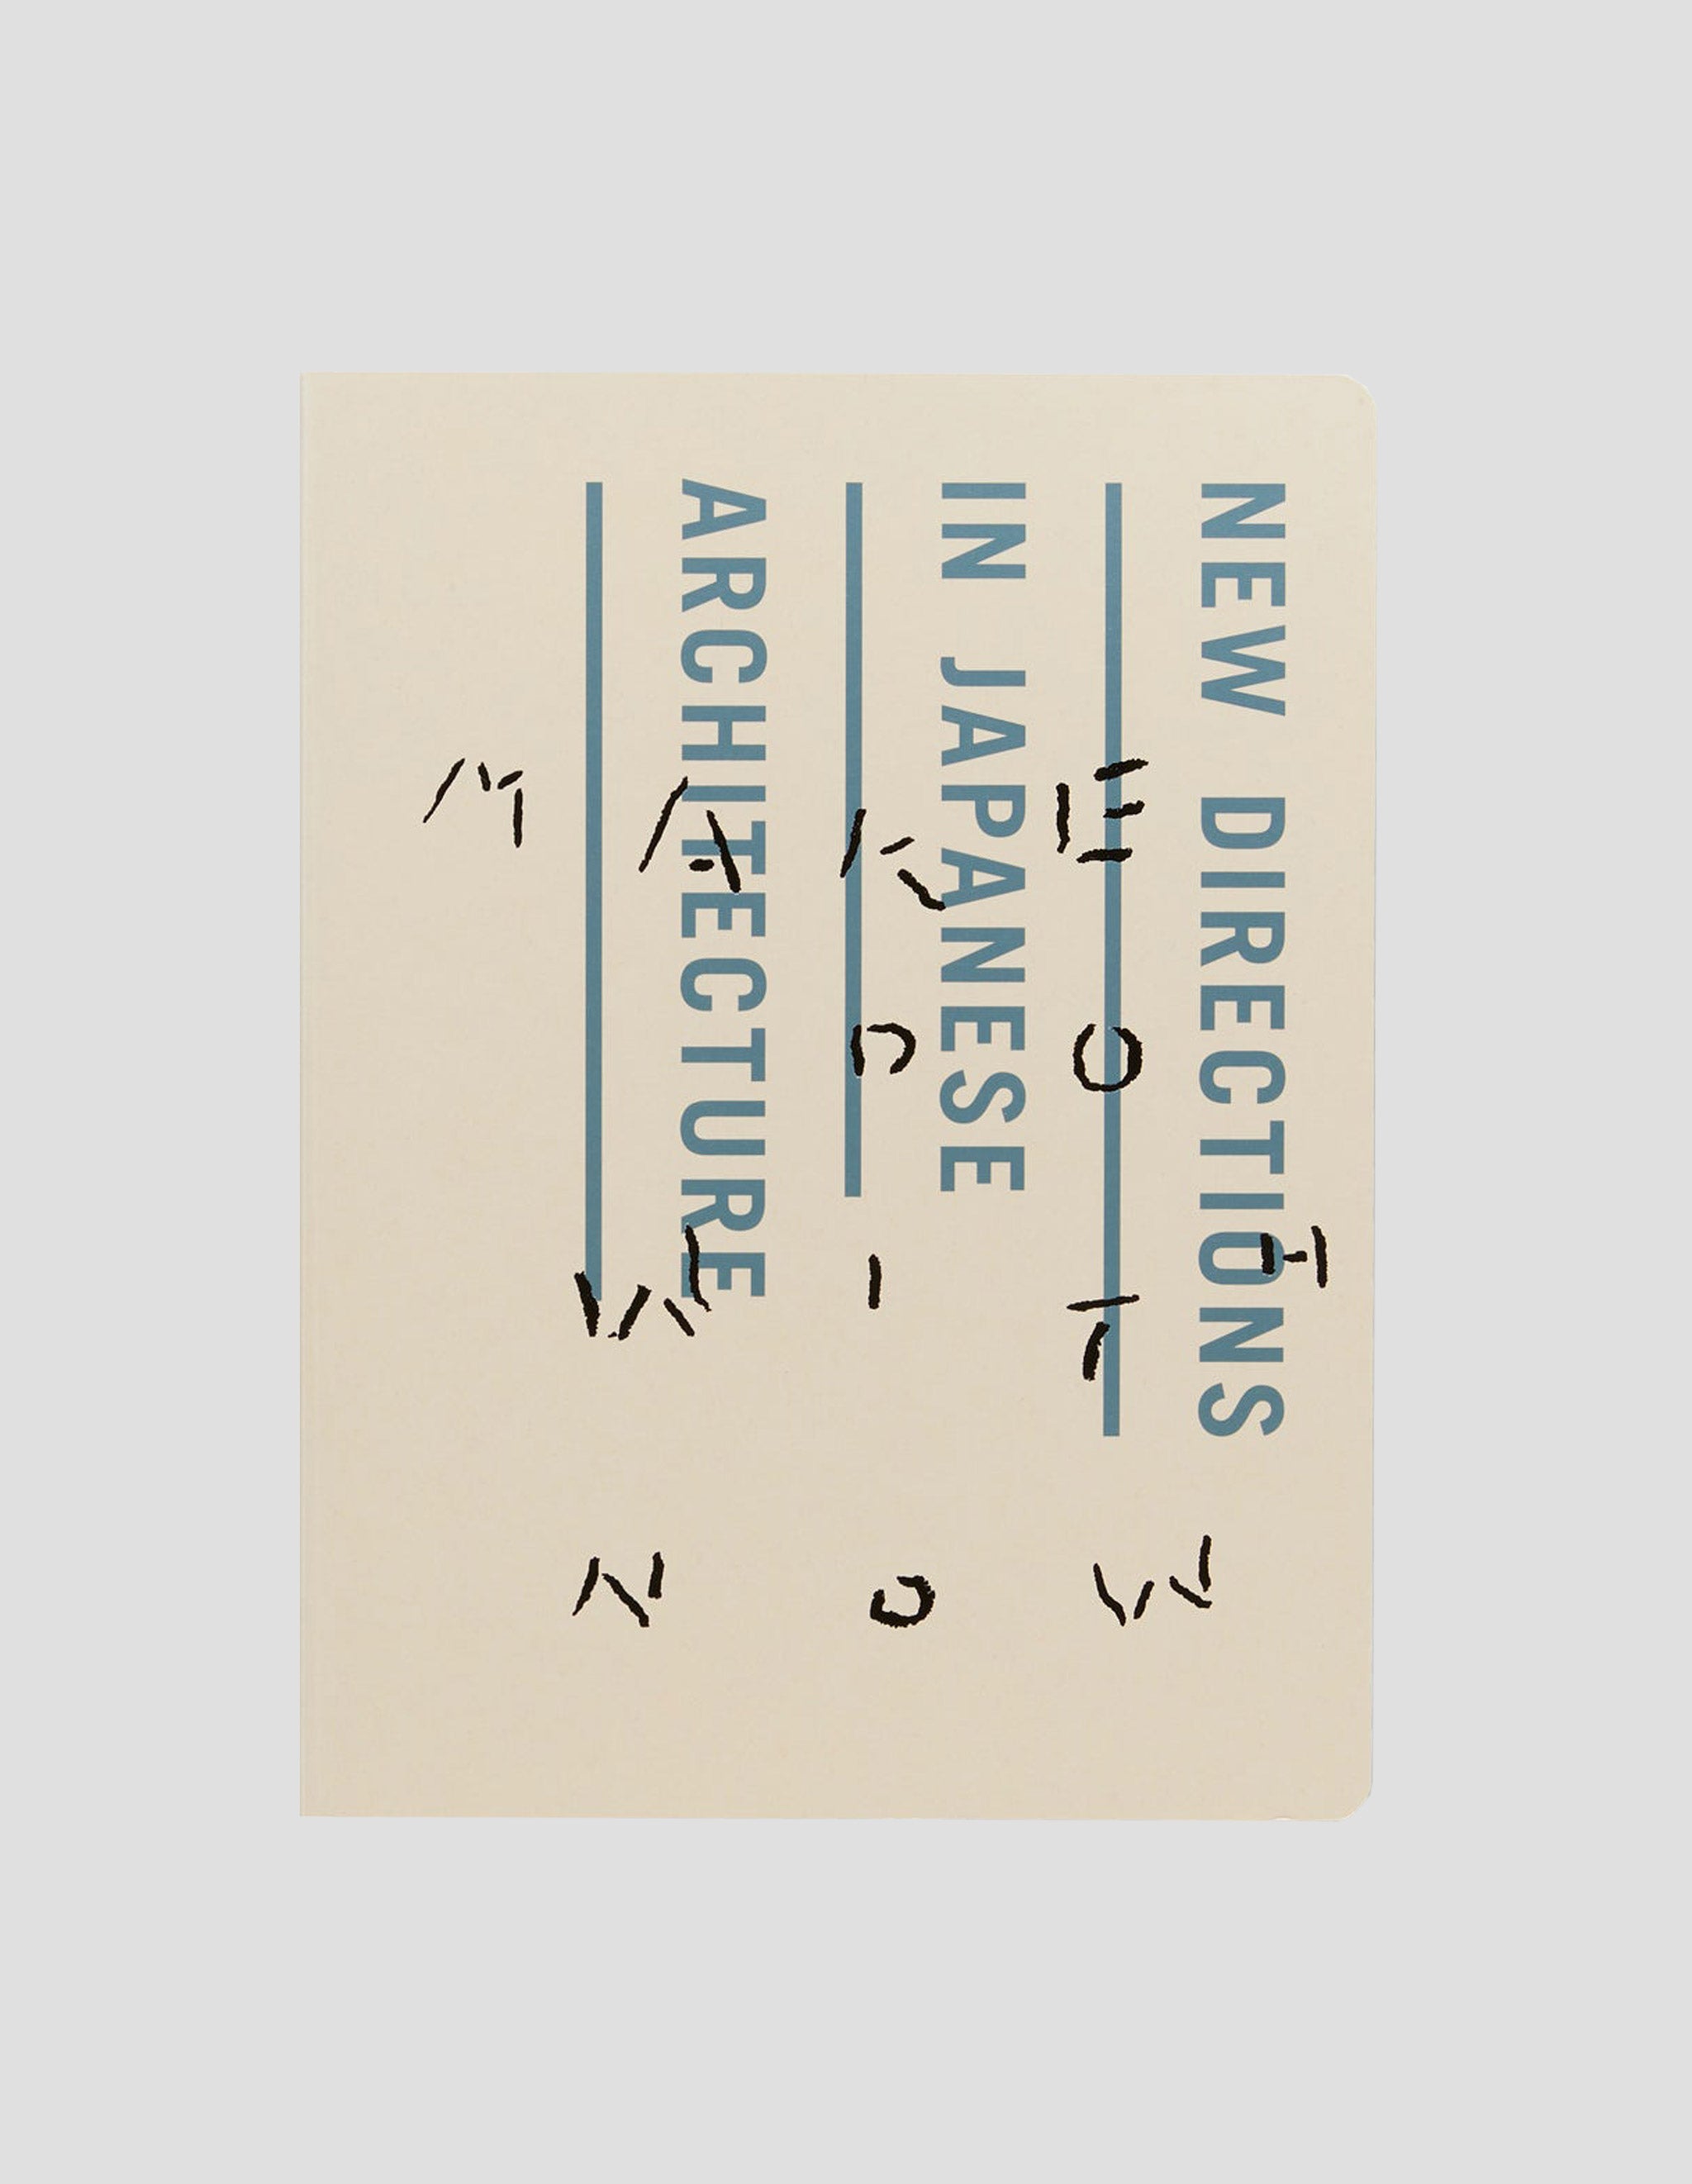 MAKE
DO
WITH
NOW
NEW DIRECTIONS
IN JAPANESE
ARCHITECTURE